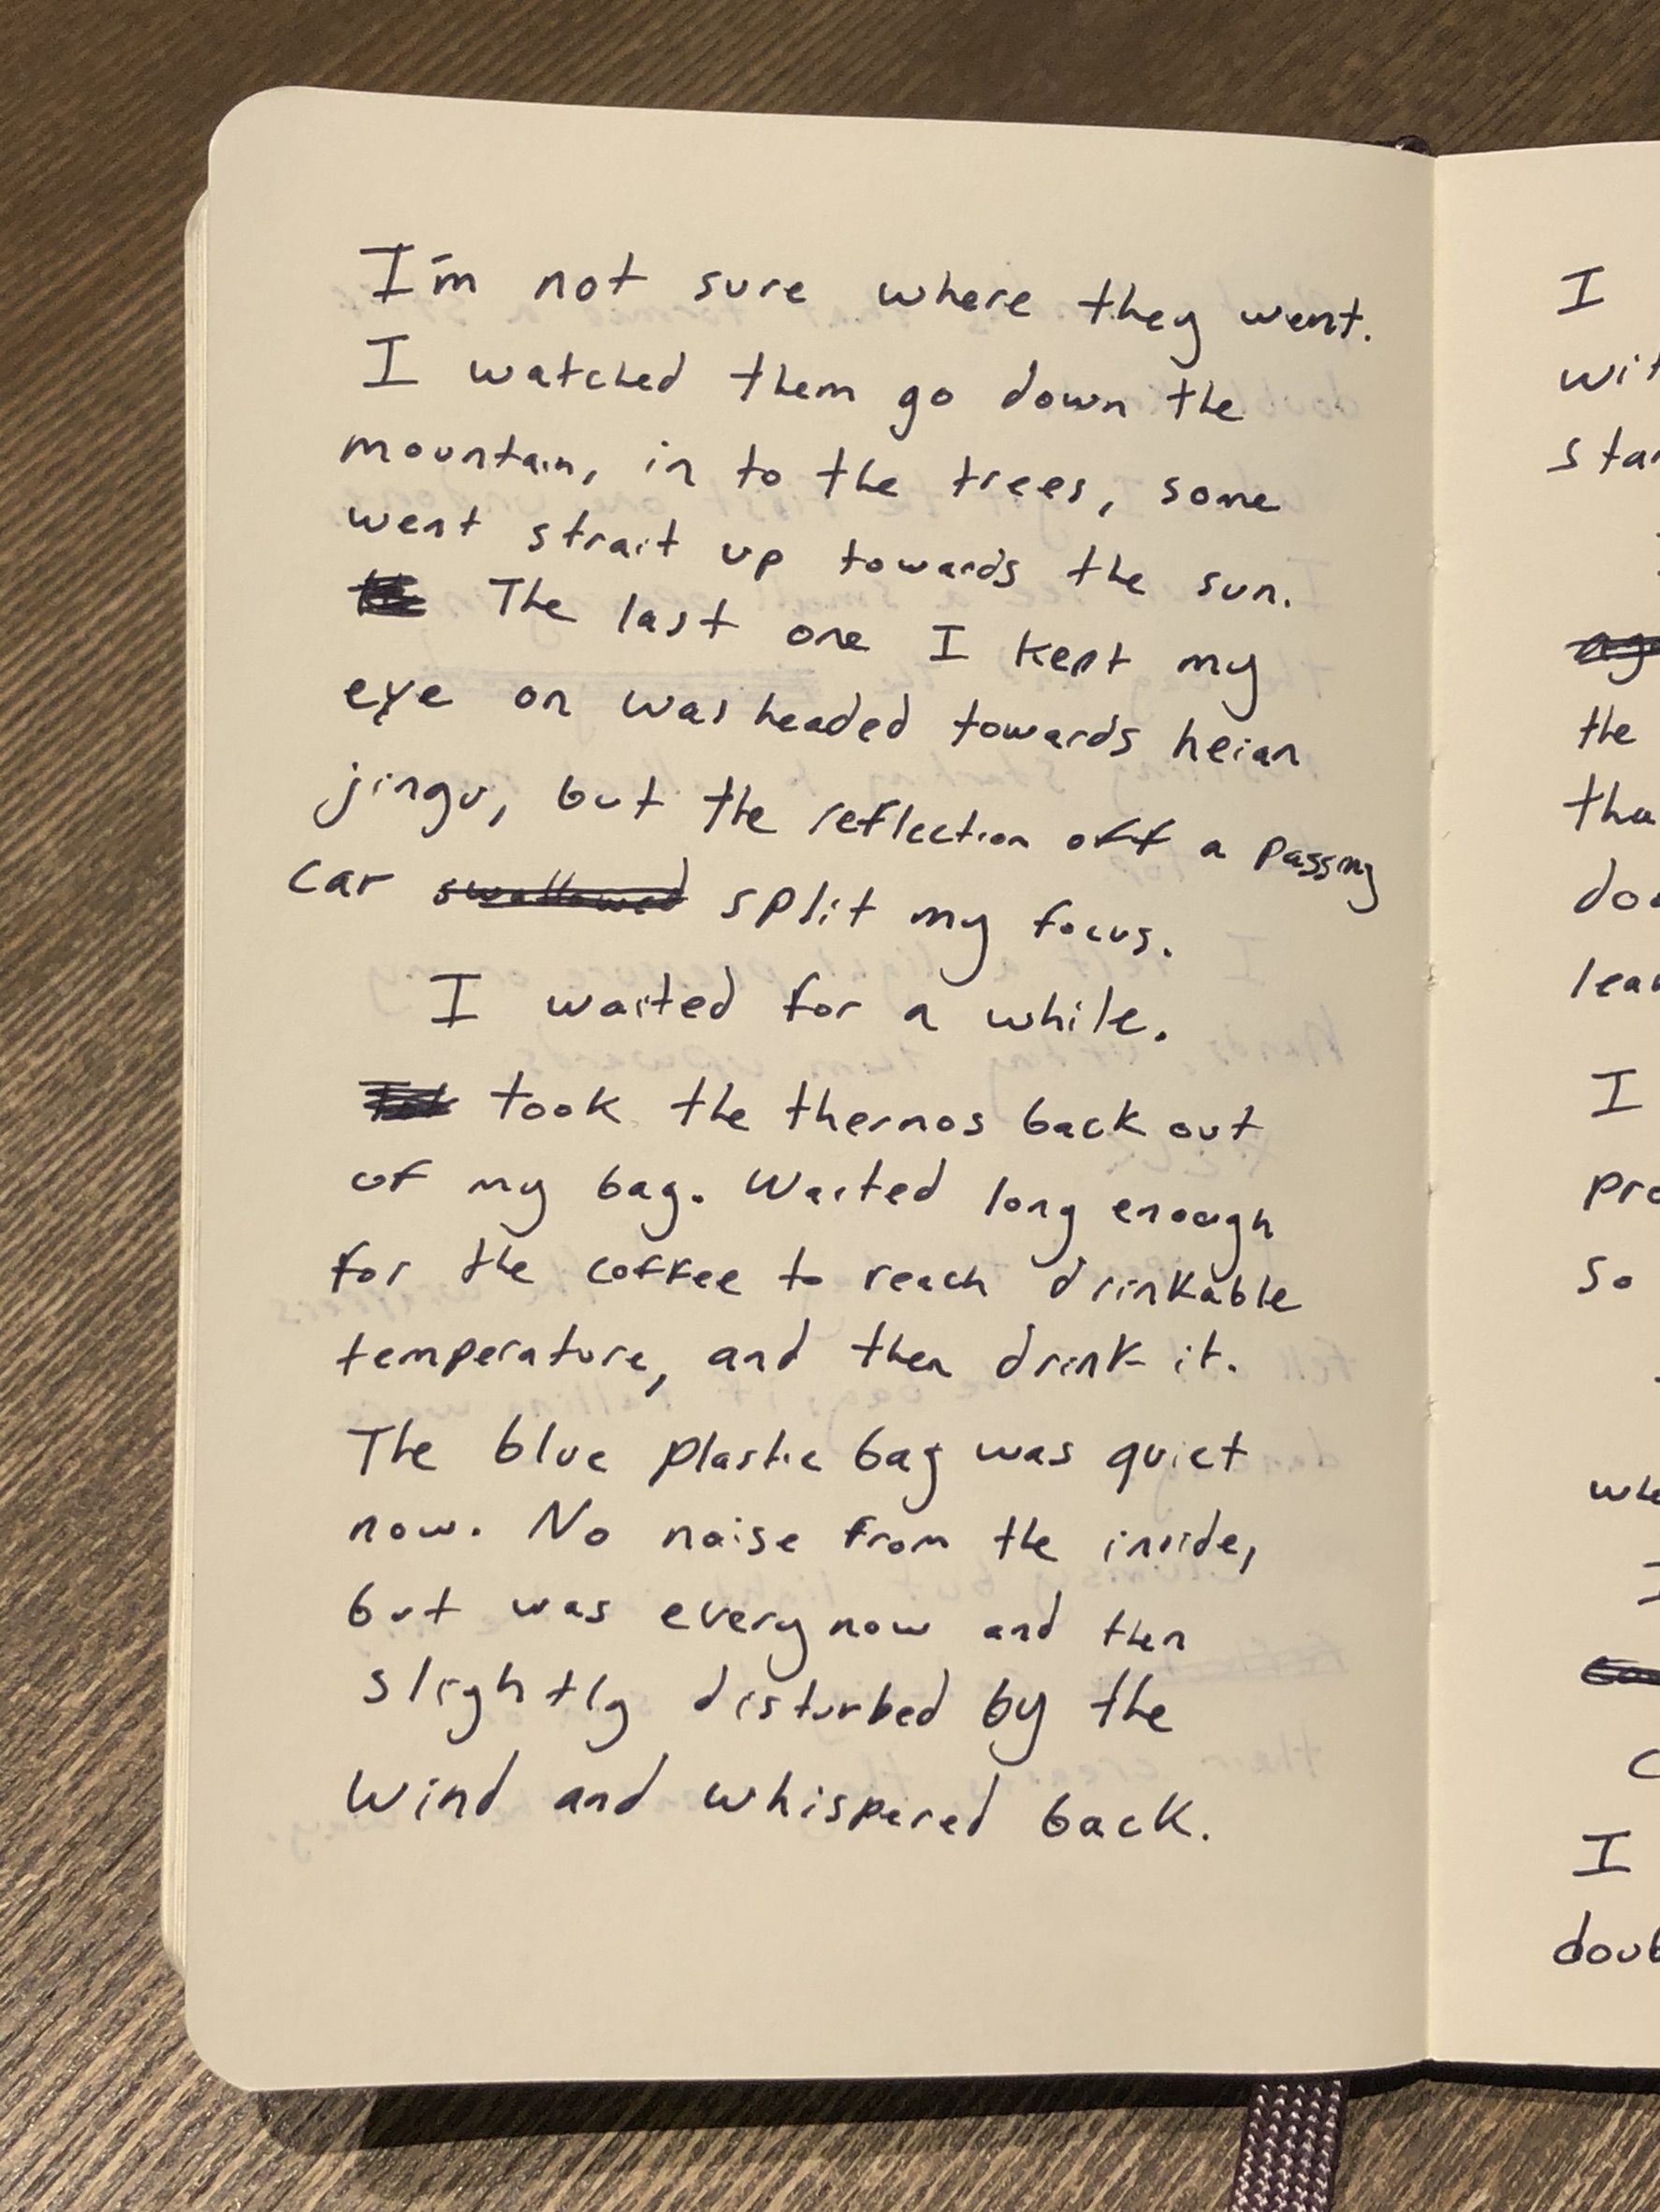 I'm not sure where they went.
I watched them go down the
mountain, in to the trees, some
went strait up towards the sun.
The last one I kept my
eye on was headed towards heian
jingu, but the reflection off a passing
car swallowed split my focus.
I waited for a while.
took the thermos back out
of my bag. Waited long enough
for the coffee to reach drinkable
temperature, and then drink it.
The blue plastic bag was quiet
now. No noise from the inside,
but was every now and then
slightly disturbed by the
wind and whispered back.
I
wit
star
the
tha
do
lear
I
pro
so
whe
I
C
I
doub